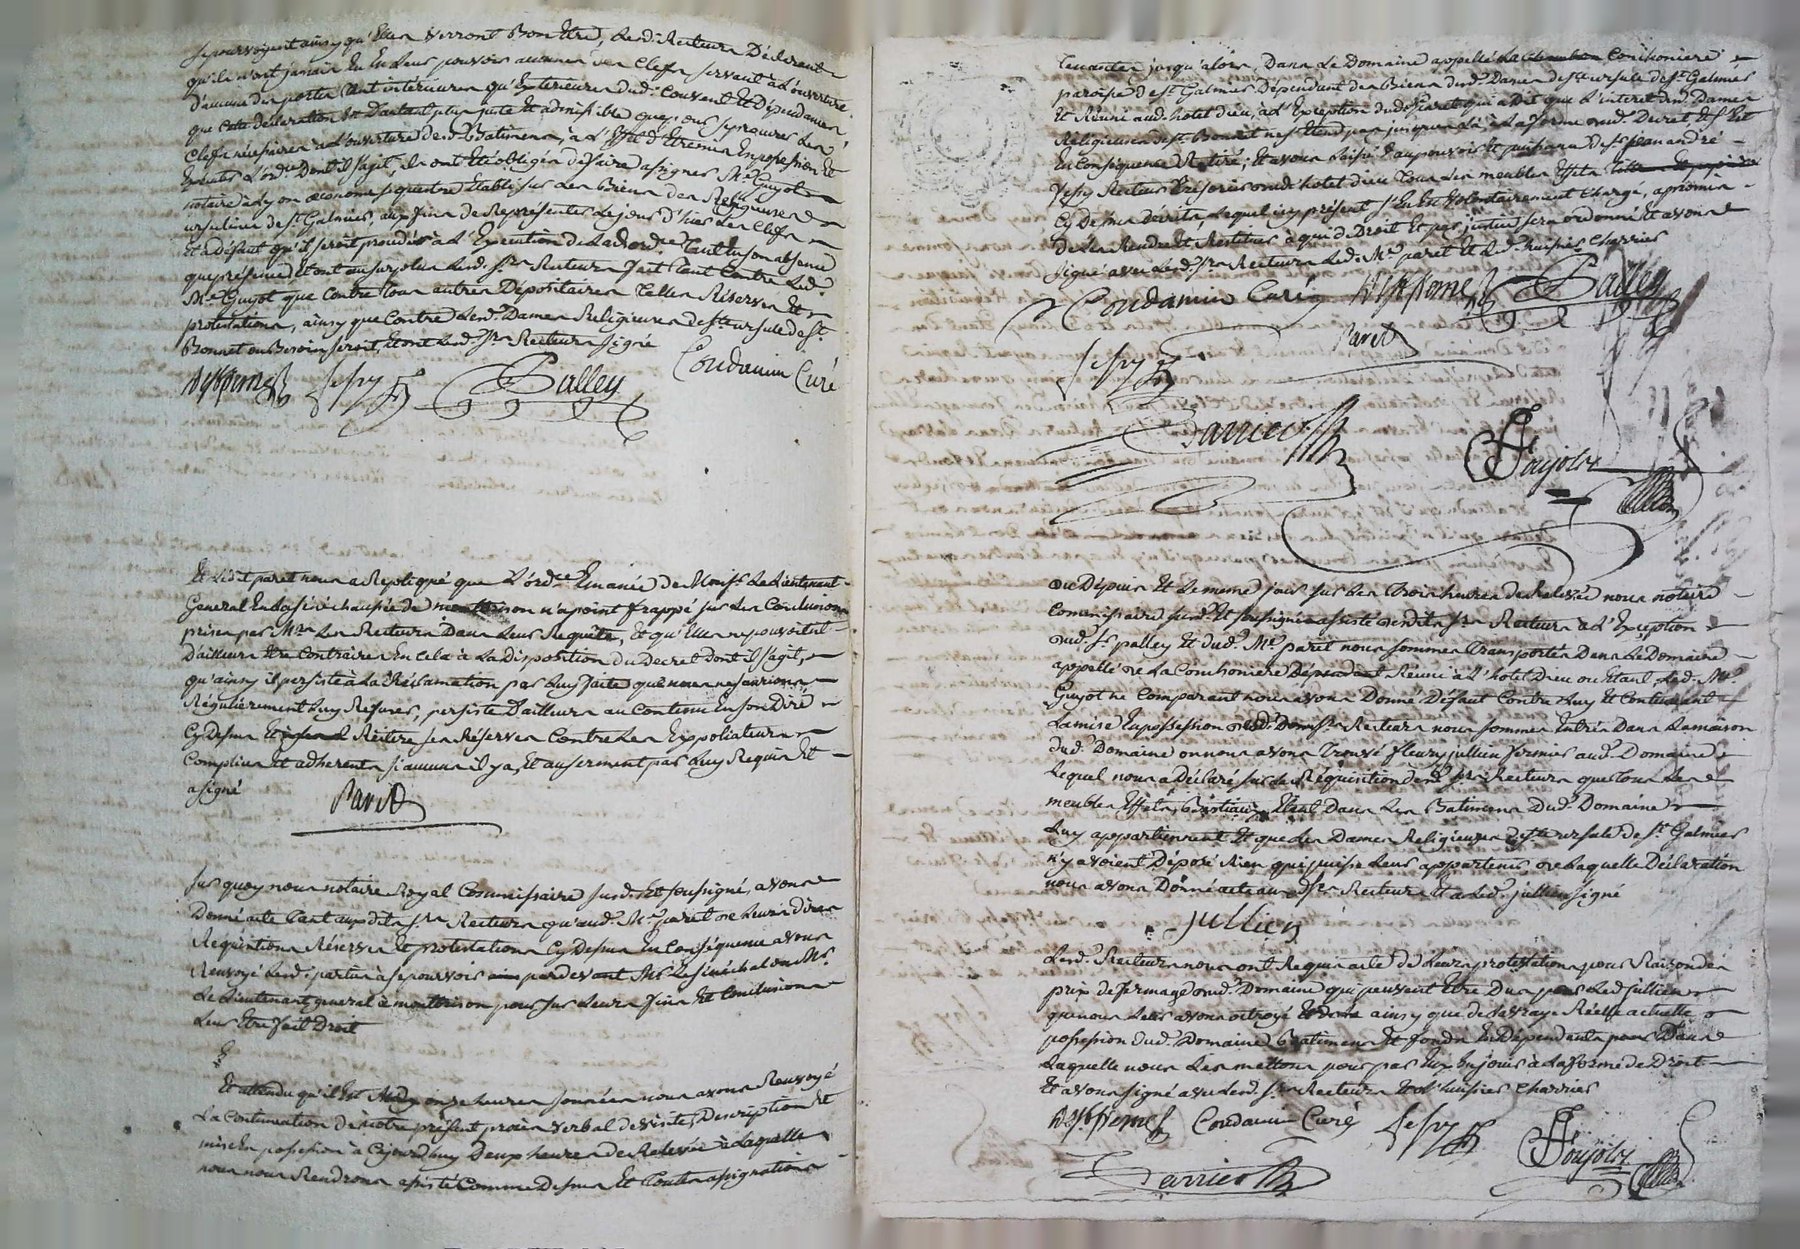 se pourvoyent ainsy qu'elles verront Bon Etre, Lesd. srs Recteurs Declarent
qu'ils n'ont jamais Eu En Leur pouvoir aucunes des Clefs servant a L'ouverture
d'aucune des portes tant intérieures qu'Exterieures dud. Couvent Et Dépendances,
que cette déclaration Est d'autant plus juste Et admissible que pour se procurer Les
Clefs nécéssaires a L'ouverture desd. Batimens, à L' d'Etre mis En possession Et
Executer L'ordce Dont il s'agit, ils ont Eté obligés de faire assigner Me Guyot
notaire à Lyon œconome sequestre Etabli sur Les Biens des Religieuses
ursulines de st Galmier, aux fins de Représenter Le jour d'hier Les Clefs
Et a Défaut qu'il seroit procédé à L'Execution de Lad. ordce Tant En son absence
que présence, Et ont au surplus Lesd. srs Recteurs fait tant Contre Led.
Me Guyot que Contre tous autres Dépositaires telles Réserves Et
protestations, ainsy que Contre Lesd. Dames Religieuses de ste ursule de st
Bonnet ou Besoin seroit, Et ont Lesd. srs Recteurs signé
Condamin Curé
Jessy Palley
Et Ledit paret nous a Repliqué que L'ordce Emanée de Monsr Le Lieutenant
General En La sénéchaussée de montbrison n'a point frappé sur Les Conclusions
prises par Mrs Les Recteurs Dans Leur Requête, Et qu'Elle ne pouvoit
D'ailleurs Etre Contraire En cela à La Disposition du Decret dont il s'agit,
qu'ainsy il persiste à La Réclamation par Luy faite que nous ne saurions
Régulierement Luy Refuser, persiste D'ailleurs au Contenu En son Diré
Cy Dessus Et Réitere ses Réserves Contre Les Expoliateurs
Complices Et adherents si aucuns il y a, Et au serment par Luy Requis Et
a signé
Paret
sur quoy nous notaire Royal Commissaire susd. Et soussigné, avons
Donné acte tant auxdits srs Recteurs qu'aud. Me paret de Leurs dires
Requisitions Réserves Et protestations Cy Dessus En Conséquence avons
Renvoyé Lesd. parties a se pourvoir pardevant Mr Le sénéchal ou Mr
Le Lieutenant general à montbrison pour sur Leurs fins Et Conclusions
Leur Etre fait Droit
Et attendu qu'il Est Midy onze heures sonnées nous avons Renvoyé
La Continuation de notre présent procès verbal de visite, Description Et
mise En possession à Cejourdhuy Deux heures de Relevée à Laquelle
nous nous Rendrons assisté Comme Dessus Et toutes assignations
tenantes jusqu'alors, Dans Le Domaine appellé La Conchoniere
paroisse de st Galmier Dépendant des Biens desd. Dames de ste ursule de st Galmier
Et Réuni aud. hotel Dieu, à L'Exception dud. sr paret qui a Dit que L'interet desd. Dames
Religieuses de st Bonnet ne s'Etend pas jusques Là, à La forme dud. Decret Et s'Est
En Conséquence Retiré; Et avons Laissé au pouvoir Et puissance de sr jean andré
Jessy Recteur Trésorier dud. hotel Dieu tous Les meubles Effets
Cy Dessus Décrits, Lequel icy présent s'En Est volontairement Chargé, a promis
De Les Rendre Et Restituer à qui de Droit Et par justice sera ordonné Et avons
signé avec Lesd. srs Recteurs Led. Me paret Et Led. huissier Charrier
Condamin Curé Palley
Paret
Jessy
Charrier
Poujolz
où Depuis Et Le même jour sur Les Trois heures de Relevée nous notaire
Commissaire susd. Et soussigné assisté desdits srs Recteurs à L'Exception
dud. sr palley Et dud. Me paret nous sommes transportés Dans Le Domaine
appellé de La Conchoniere Dépendant Réuni à L'hotel Dieu ou Etant, Led. Me
Guyot ne Comparant nous avons Donné Défaut Contre Luy Et Continuant
La mise En possession desd. srs Recteurs nous sommes Entrés Dans La maison
dud. Domaine ou nous avons Trouvé fleury jullien fermier aud. Domaine
Lequel nous a Déclaré sur La Réquisition desd. srs Recteurs que tous Les
meubles Effets, Bestiaux Etant Dans Les Batimens Dud. Domaine
Luy appartiennent Et que Les Dames Religieuses de ste ursule de st Galmier
n'y avoient Déposé Rien qui puisse Leur appartenir, de Laquelle Déclaration
nous avons Donné acte auxd. srs Recteurs Et a Led. jullien signé
jullien
Lesd. Recteurs nous ont Requis acte de Leurs protestations pour Raison des
prix de fermage dud. Domaine qui peuvent Etre Dus par Led. jullien
que nous Leur avons octroyé ainsy que de La vraye Réelle actuelle
possession dud. Domaine Batimens Et fonds En Dépendants pour Dans
Laquelle nous Les mettons pour par Eux En jouir à La forme de Droit
Et avons signé avec Lesd. srs Recteurs Et L'huissier Charrier
Condamin Curé Jessy
Charrier Poujolz